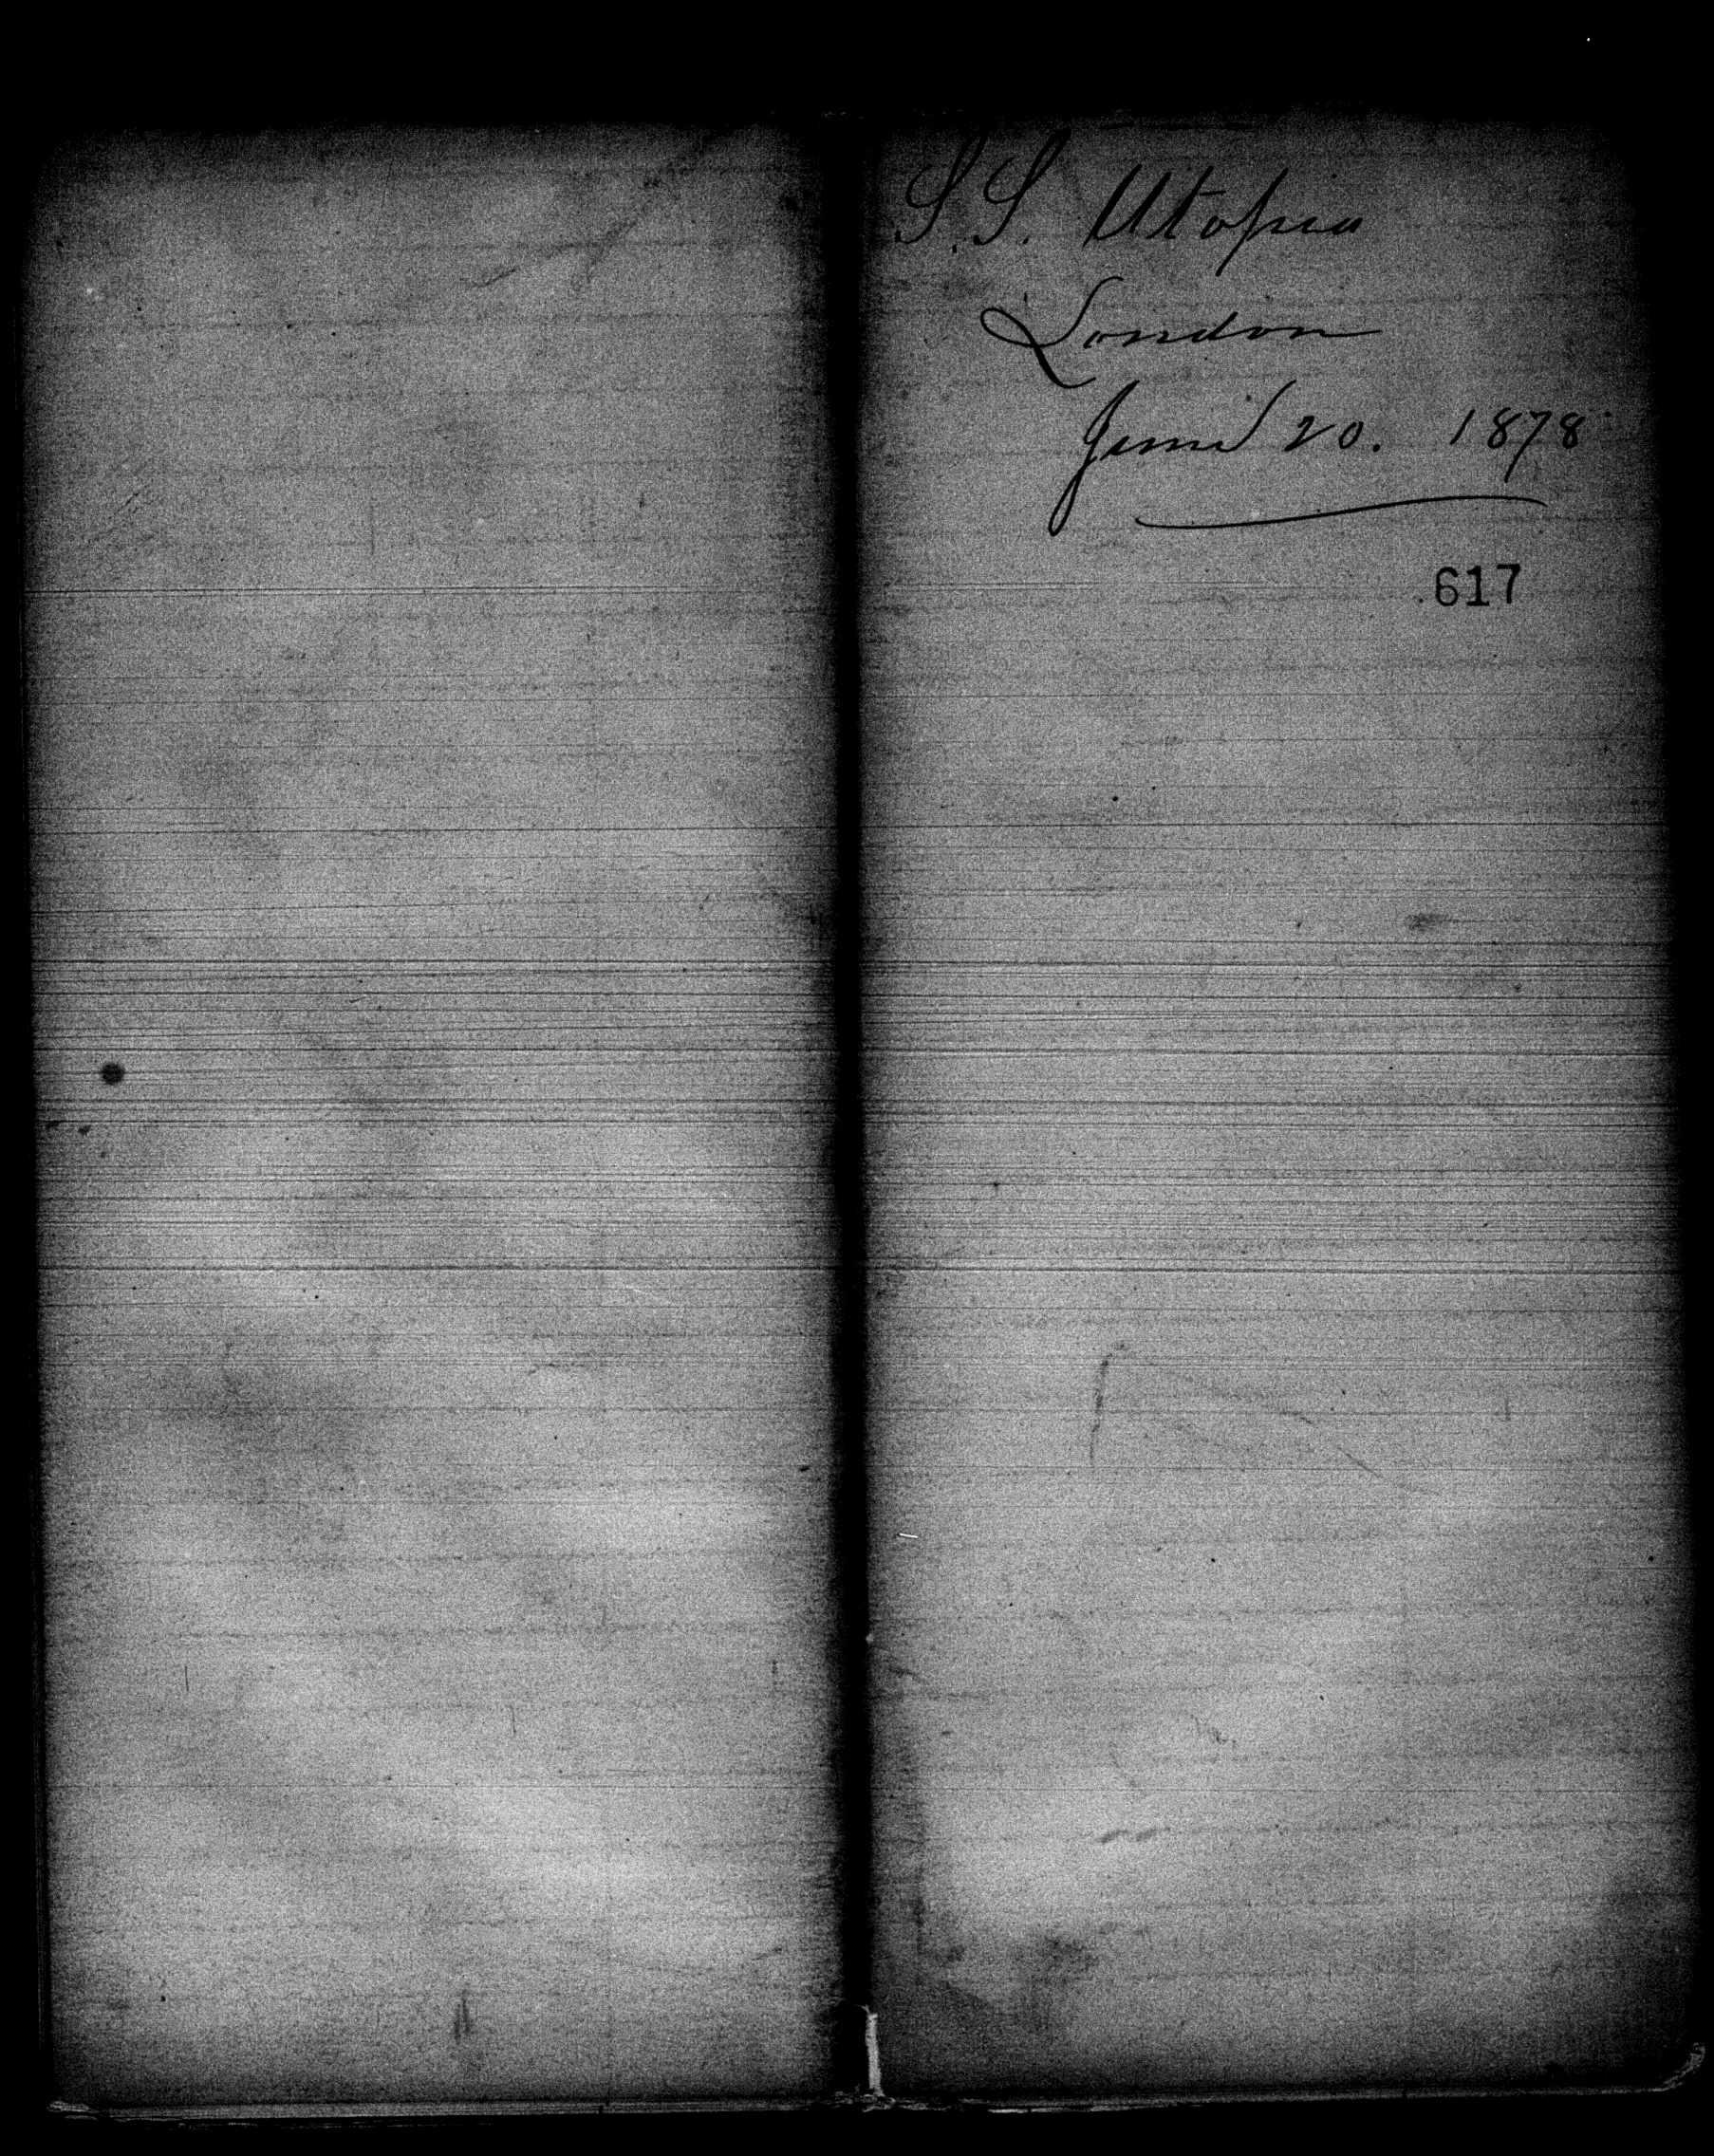 S.S. Utopia
London
June 20. 1878
617